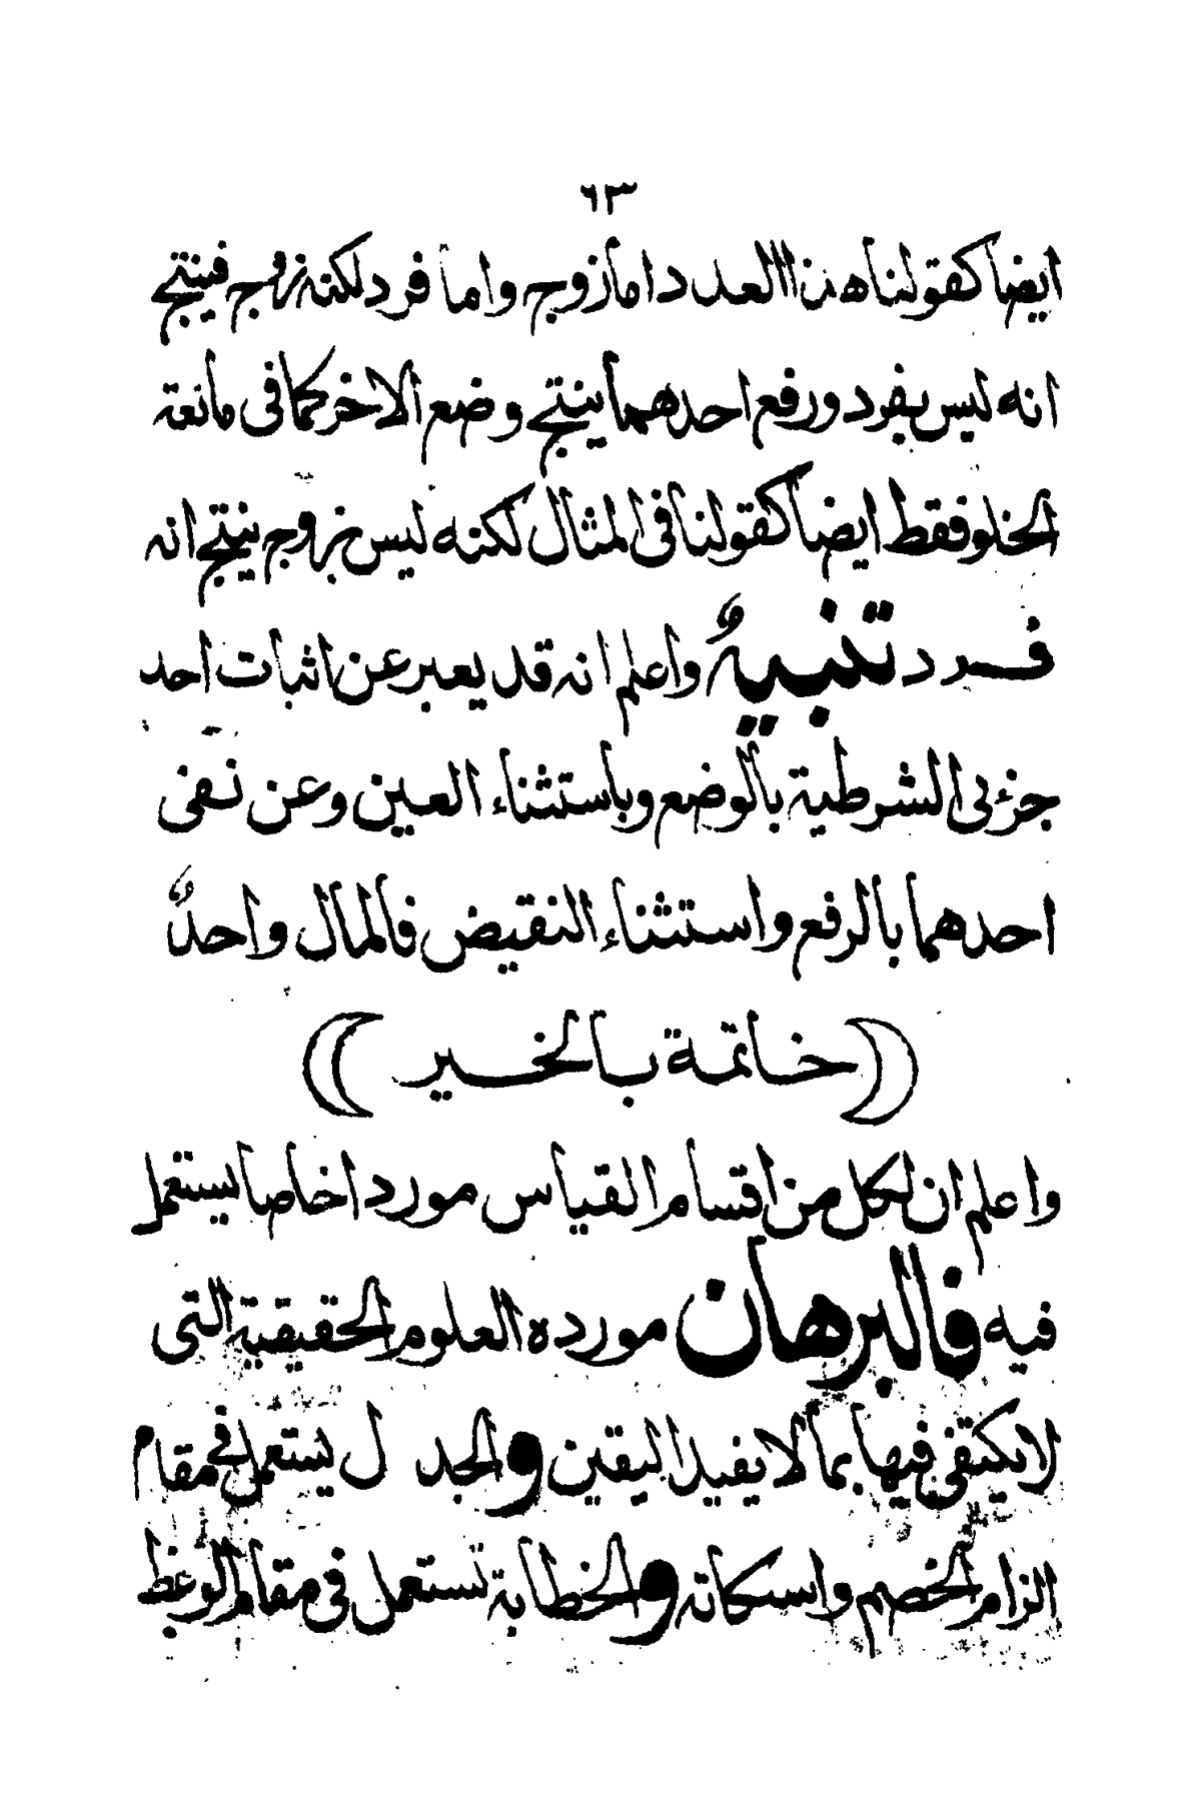 ٦٣
ايضا كقولنا هذا العدد اما زوج واما فرد لكنه زوج فينتج
انه ليس بفرد ورفع احدهما ينتج وضع الاخر كما فى مانعة
الخلو فقط ايضا كقولنا فى المثال لكنه ليس بزوج ينتج انه
فرد تنبيهٌ واعلم انه قد يعبر عن اثبات احد
جزئى الشرطية بالوضع وباستثناء العين وعن نفى
احدهما بالرفع واستثناء النقيض فالمال واحدٌ
( خاتمة بالخير )
واعلم ان لكل من اقسام القياس موردا خاصا يستعمل
فيه فالبرهان مورده العلوم الحقيقية التى
لا يكتفى فيها بما لا يفيد اليقين والجدل يستعمل فى مقام
الزام الخصم واسكاته والخطابة تستعمل فى مقام الوعظ